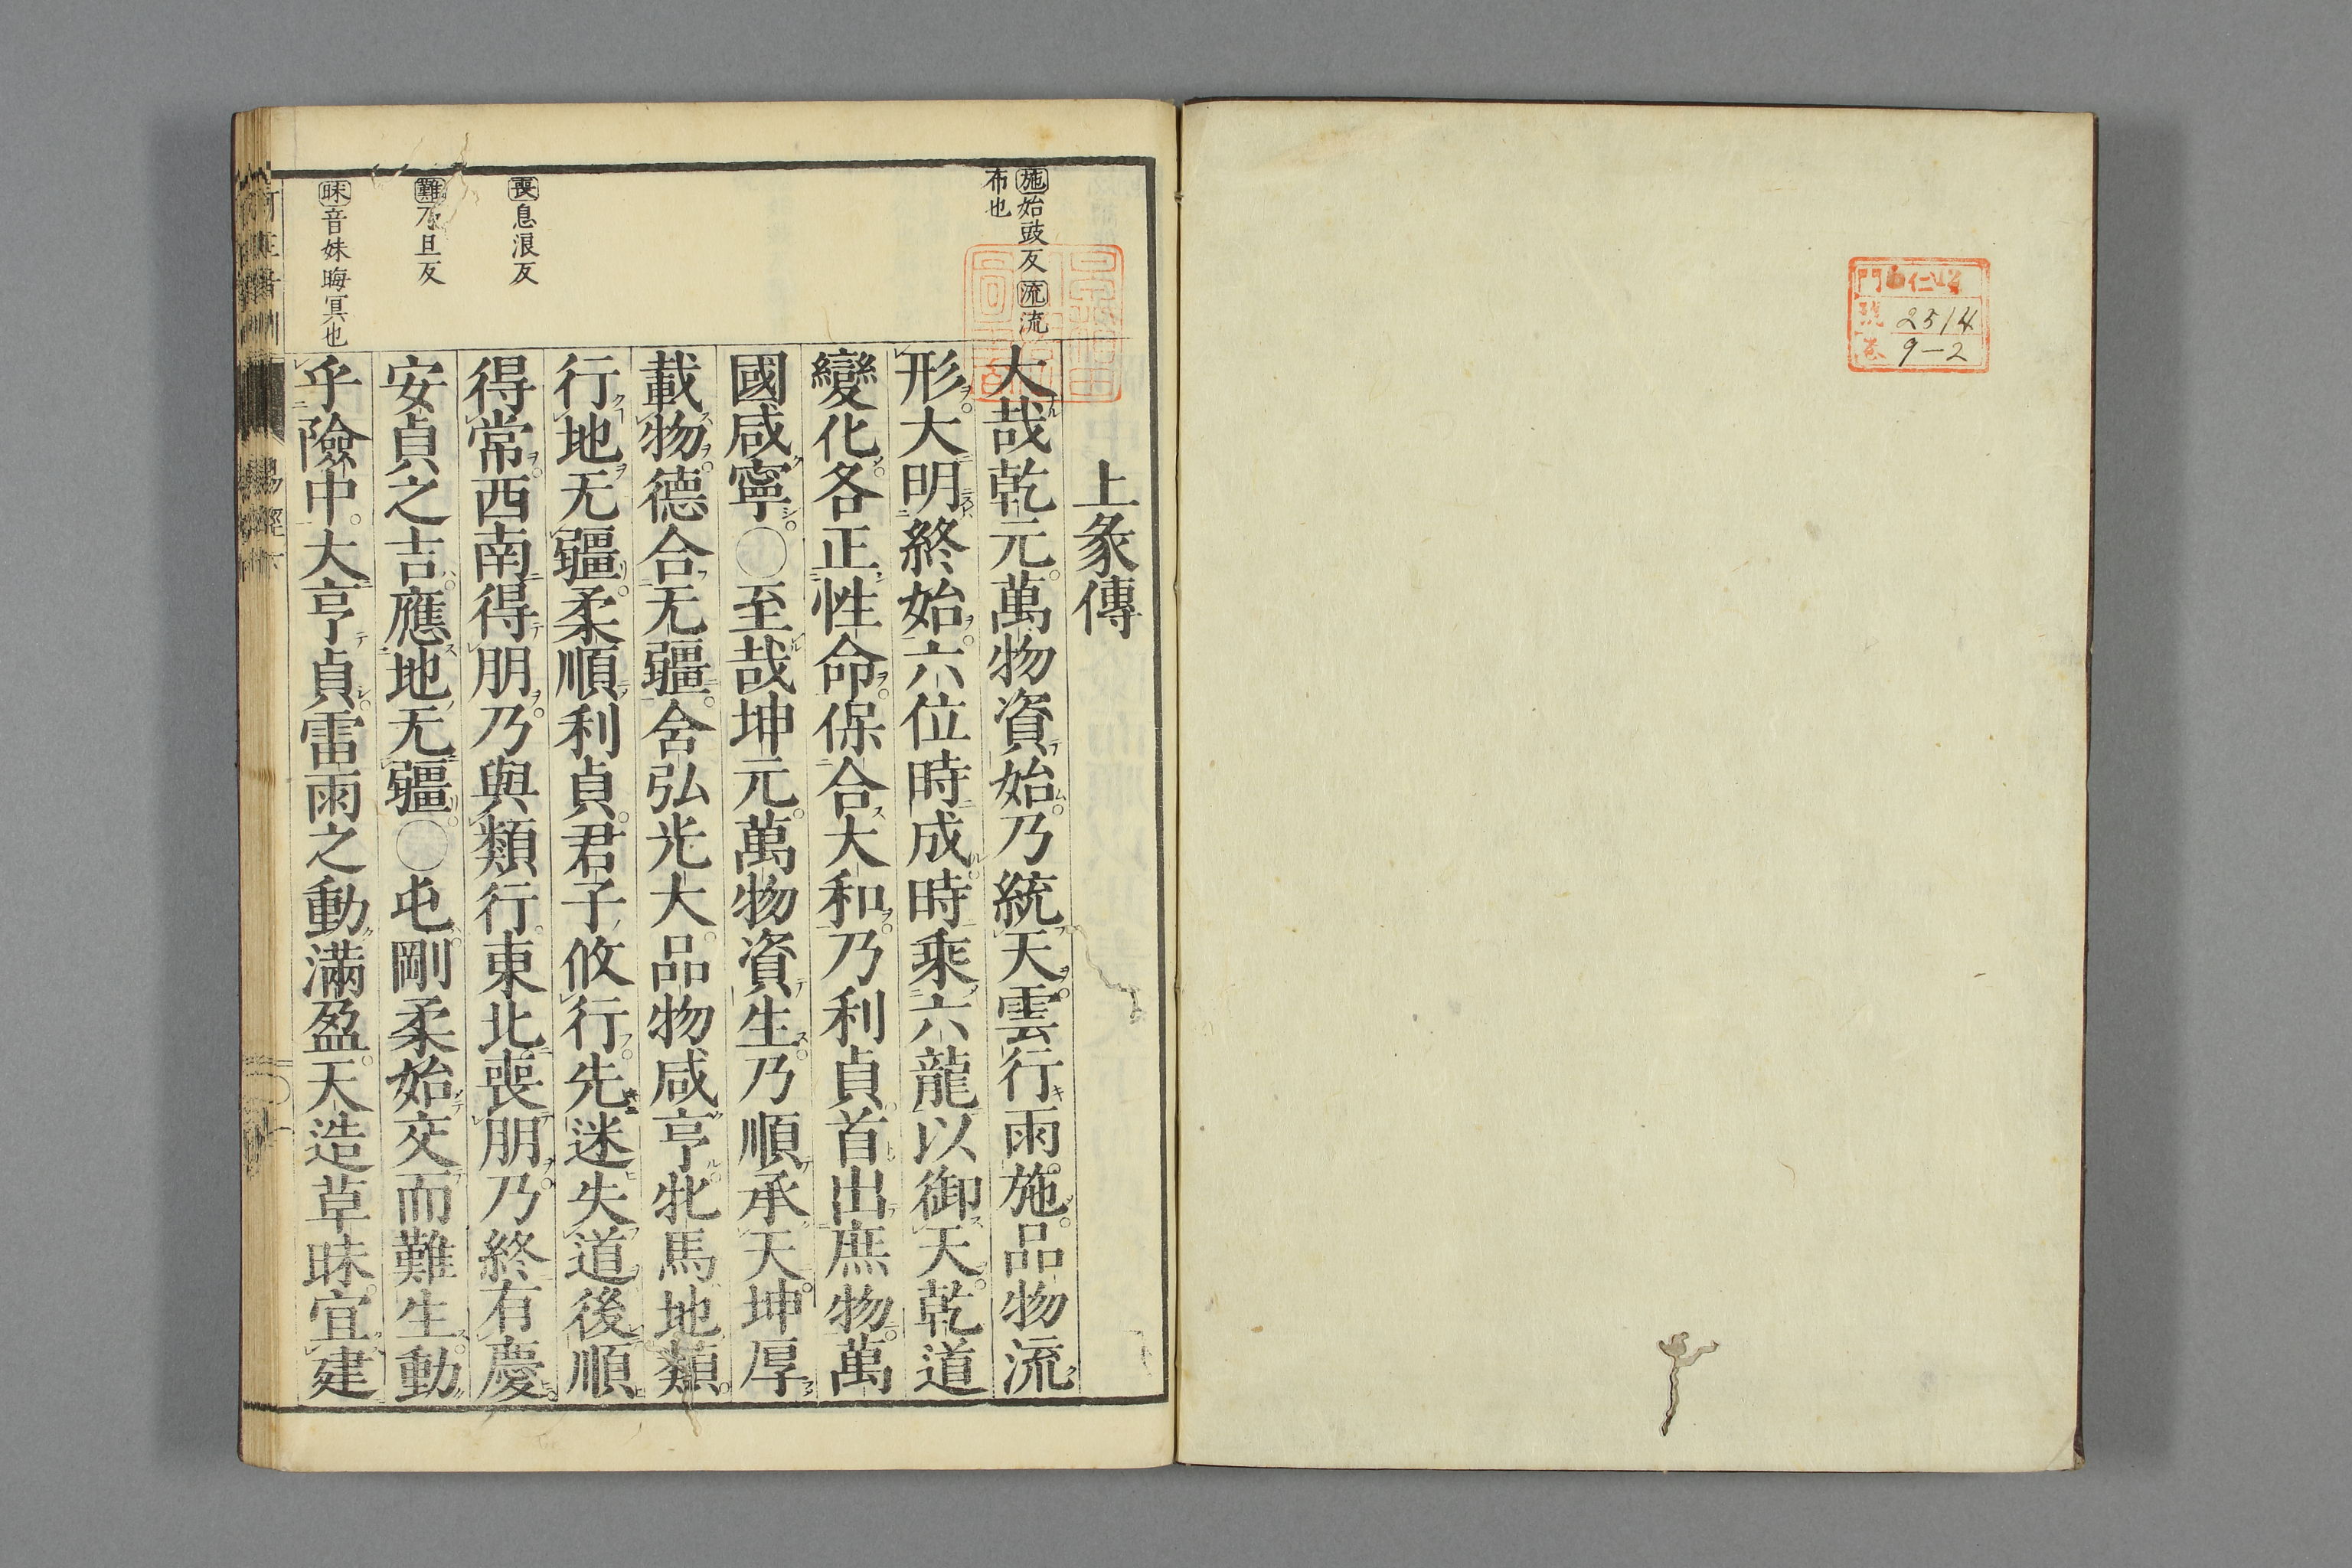 2514
9-2
上彖傳
大哉乾元萬物資始乃統天雲行雨施品物流
形大明終始六位時成時乘六龍以御天乾道
變化各正性命保合大和乃利貞首出庶物萬
國咸寧○至哉坤元萬物資生乃順承天坤厚
載物德合无疆含弘光大品物咸亨牝馬地類
行地无疆柔順利貞君子攸行先迷失道後順
得常西南得朋乃與類行東北喪朋乃終有慶
安貞之吉應地无疆○屯剛柔始交而難生動
乎險中大亨貞雷雨之動滿盈天造草昧宜建
施始豉反流流
布也
喪息浪反
難乃旦反
昧音妹晦冥也
易經